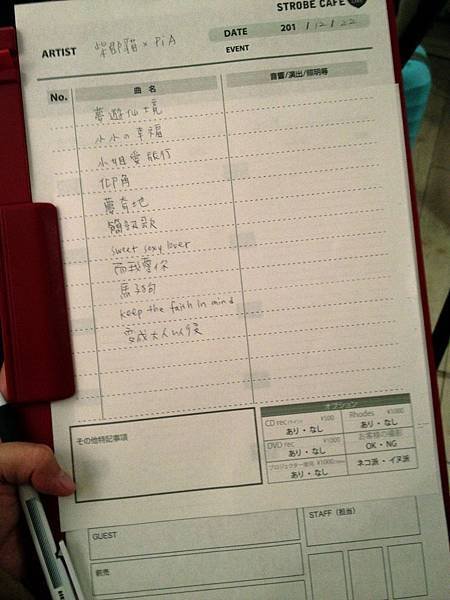 STROBE CAFE
ARTIST 柴郡貓 × PiA
DATE 201 / 12 / 22
EVENT
No. 曲名 音響/演出/照明等
夢遊仙境
小小の幸福
小姐愛旅行
仰角
簡訊歌
sweet sexy lover
而我愛你
keep the faith in mind
變成大人以後
その他特記事項
オプション
CD rec ¥500
あり・なし
Rhodes ¥1000
あり・なし
DVD rec ¥1000
あり・なし
お客様の撮影
OK・NG
プロジェクター使用 ¥1000
あり・なし
ネコ派・イヌ派
GUEST
STAFF（担当）
前売